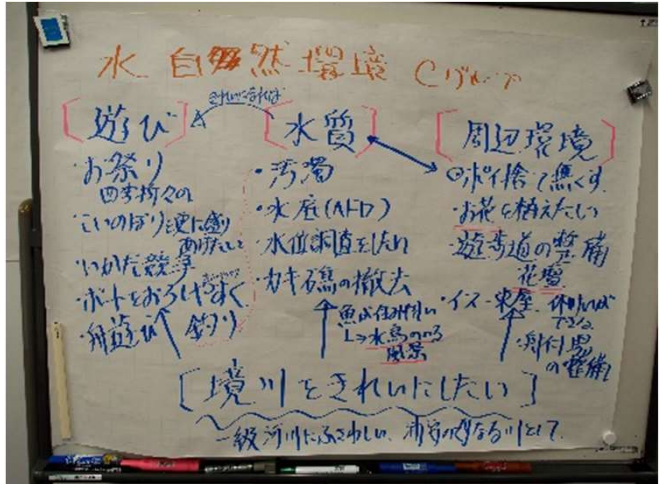 水 自然環境 Cグループ
きれいになれば
[遊び]
・お祭り
四季折々の
・こいのぼり更に盛り
あげたい
・いかだ競争
・ボートをおろしやすく
・舟遊び
釣り
[水質]
・汚濁
・水底(ヘドロ)
・水位調査をしたい
・カキ礁の撤去
魚が住み
水鳥のいる
風景
[周辺環境]
ポイ捨て無くす
・お花を植えたい
・遊歩道の整備
花壇
・イス 東屋
できる
・舟付場
の整備
[境川をきれいにしたい]
一級河川にふさわしい、浦安の母なる川として